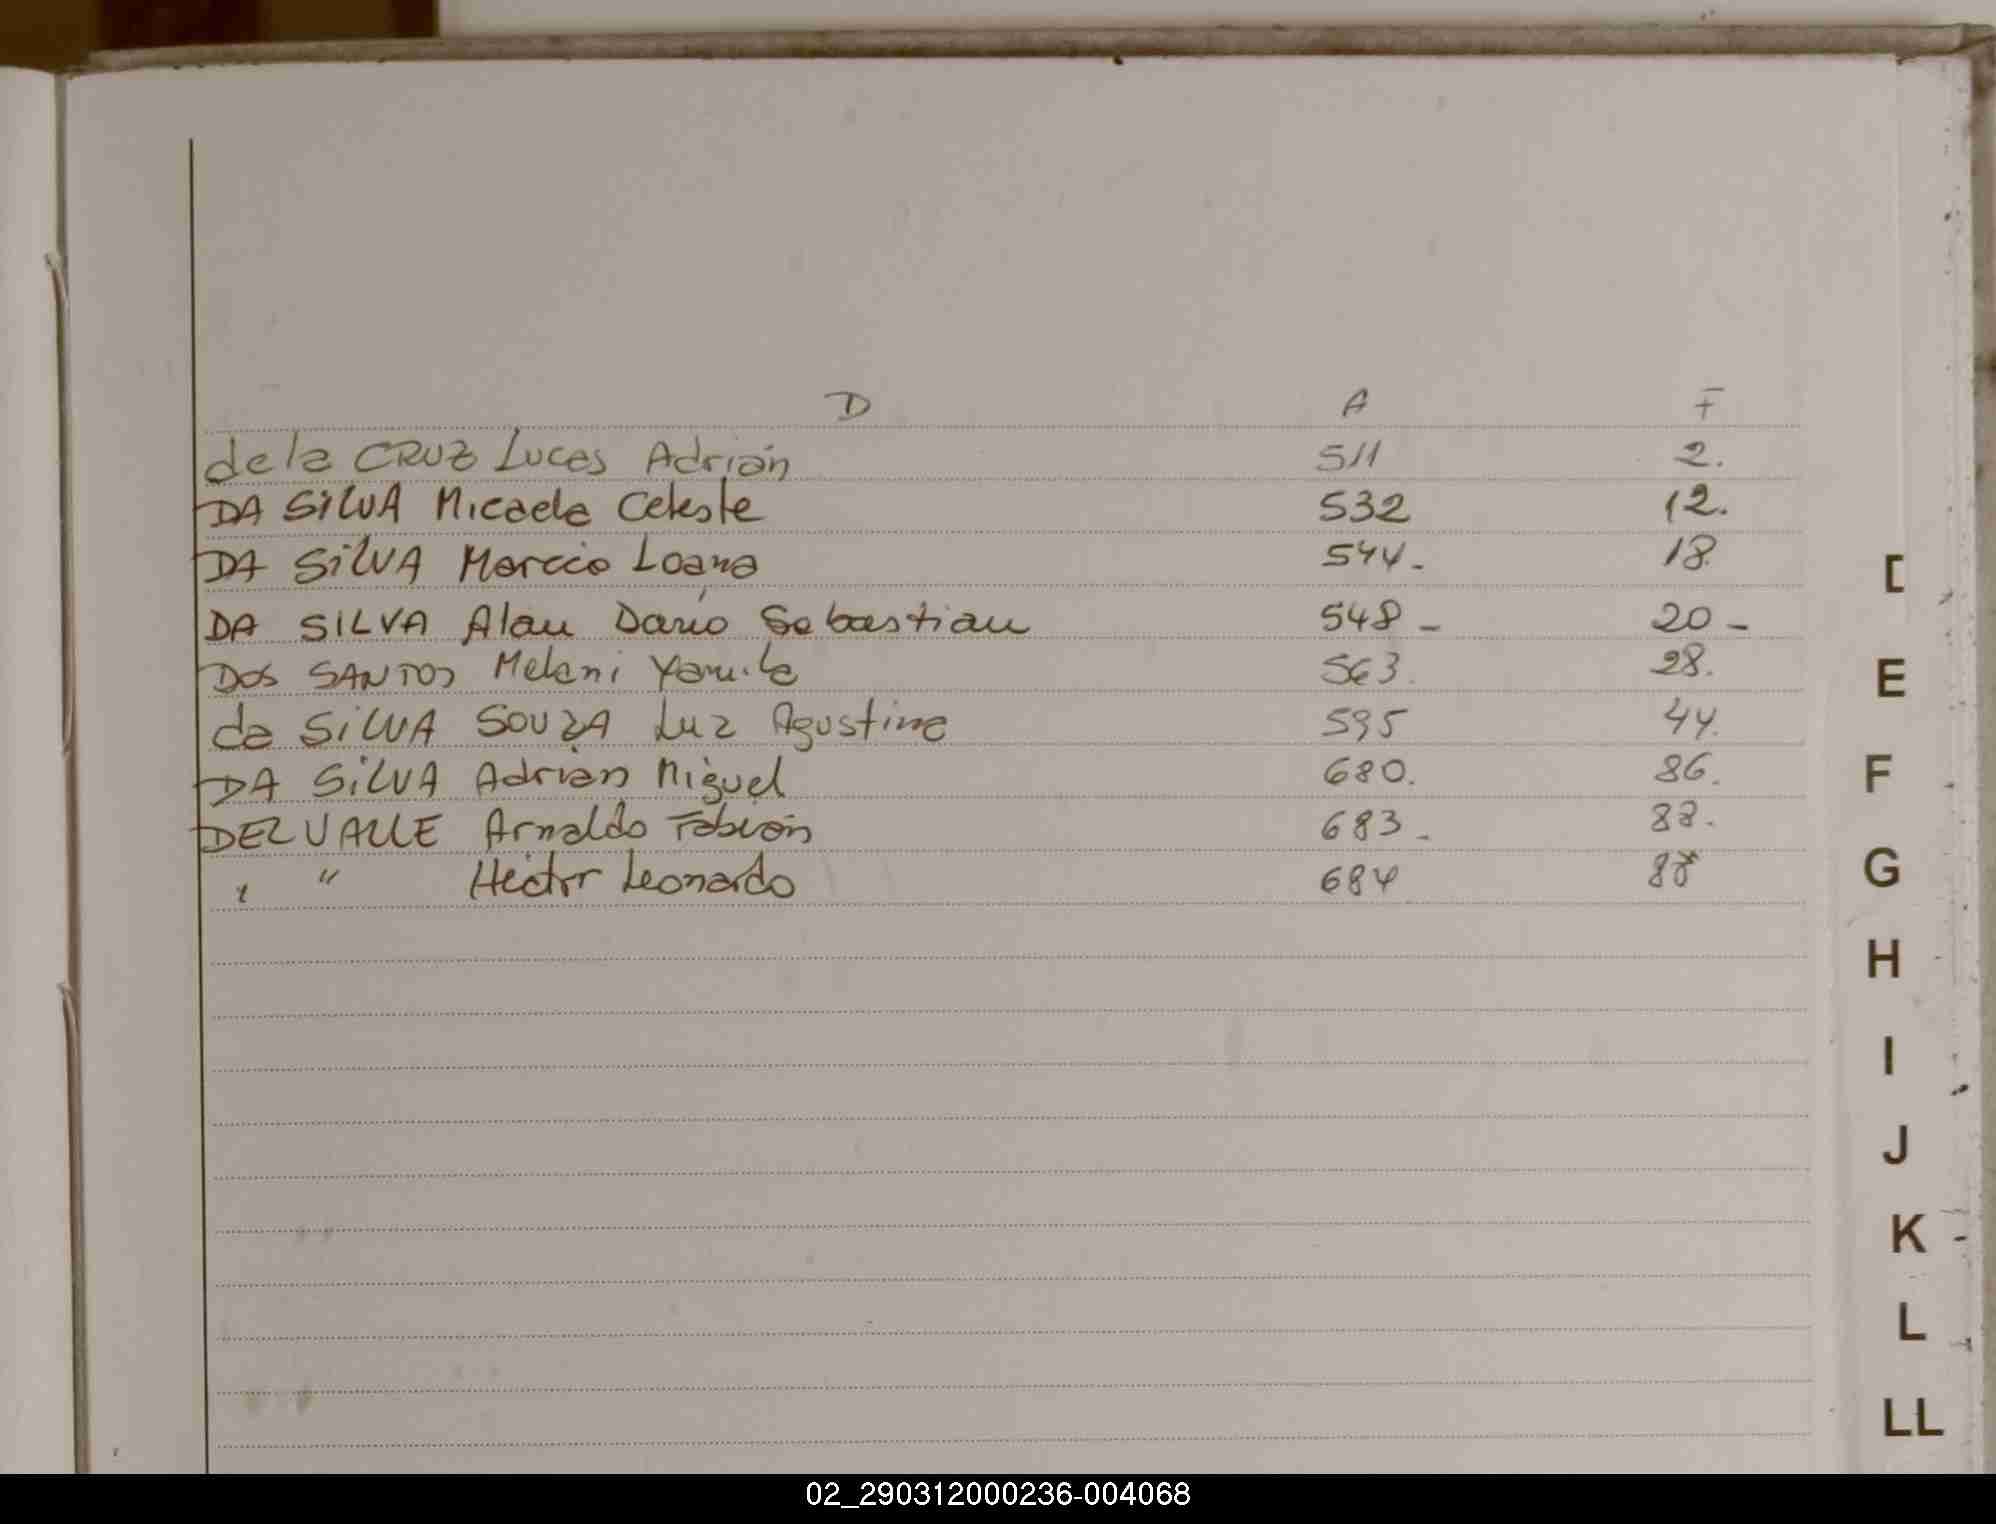 D A F
de la CRUZ Lucas Adrián 511 2.
DA SILVA Micaela Celeste 532 12.
DA SILVA Marcio Loana 544. 18.
DA SILVA Alan Darío Sebastian 548 - 20 -
DOS SANTOS Melani Yamila 563. 28.
da SILVA SOUZA Luz Agustina 595 44.
DA SILVA Adrián Miguel 680. 86.
DEL VALLE Arnaldo Fabián 683. 88.
" " Héctor Leonardo 684 88
D
E
F
G
H
I
J
K
L
LL
02_290312000236-004068